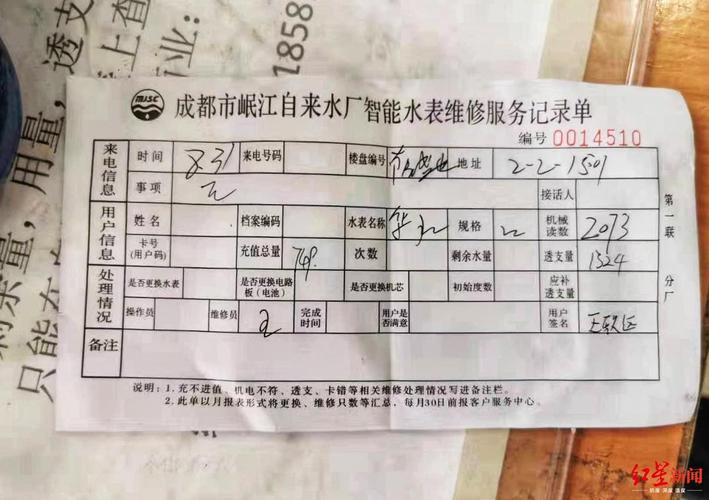 透支
上查
业:
1858
用量,
剩余量,
只能在
MJSC
成都市岷江自来水厂智能水表维修服务记录单
编号 0014510
来电信息 时间 8.31 来电号码 楼盘编号 地址 2-2-1501
事项 接话人
用户信息 姓名 档案编码 水表名称 规格 机械读数 2073
卡号(用户码) 充值总量 749. 次数 剩余水量 透支量 1324
处理情况 是否更换水表 是否更换电路板(电池) 是否更换机芯 初始度数 应补透支量
操作员 维修员 完成时间 用户是否满意 用户签名
备注
第一联 分厂
说明:1.充不进值、机电不符、透支、卡错等相关维修处理情况写进备注栏。
2.此单以月报表形式将更换、维修只数等汇总,每月30日前报客户服务中心。
红星新闻